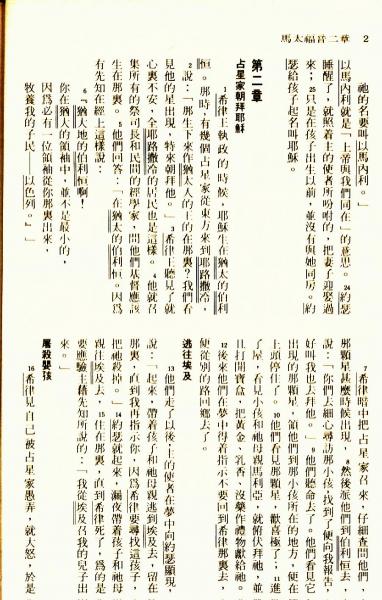 馬太福音二章 2
祂的名要叫以馬內利。」
以馬內利就是「上帝與我們同在」的意思。24約瑟
睡醒了，就照着主的使者所吩咐的，把妻子迎娶過
來；25只是在孩子出生以前，並沒有與她同房。約
瑟給孩子起名叫耶穌。
第二章
占星家朝拜耶穌
1希律王執政的時候，耶穌生在猶太的伯利
恒。那時，有幾個占星家從東方來到耶路撒冷，
2說：「那生下來作猶太人的王的在那裏？我們看
見他的星出現，特來朝拜他。」3希律王聽見了就
心裏不安，全耶路撒冷的居民也是這樣。4他就召
集所有的祭司長和民間的經學家，問他們基督應該
生在那裏。5他們回答：「在猶太的伯利恒。因為
有先知在經上這樣說：
6『猶大地的伯利恒啊！
你在猶大的領袖中，並不是最小的，
因為必有一位領袖從你那裏出來，
牧養我的子民——以色列。』」
7希律暗中把占星家召來，仔細查問他們，
那顆星甚麼時候出現，8然後派他們到伯利恒去，
說：「你們去細心尋訪那小孩，找到了便向我報告，
好叫我也去拜他。」9他們聽命去了。他們看見它
出現的那顆星，領他們到那小孩所在的地方，便在
上頭停住了。10他們看見那顆星，歡喜極了；11進
了屋，看見小孩和祂母親馬利亞，就俯伏拜祂，並
且打開寶盒，把黃金、乳香、沒藥作禮物獻給祂。
12後來他們在夢中得着指示不要回到希律那裏去，
便從別的路回鄉去了。
逃往埃及
13他們走了以後，主的使者在夢中向約瑟顯現，
說：「起來，帶着孩子和祂母親逃到埃及去，留在
那裏，直到我再指示你，因為希律要尋找這孩子，
把祂殺掉。」14約瑟就起來，漏夜帶着孩子和祂母
親往埃及去，15住在那裏，直到希律死了，爲的是
要應驗主藉先知所說的：「我從埃及召我的兒子出
來。」
屠殺嬰孩
16希律見自己被占星家愚弄，就大怒，於是